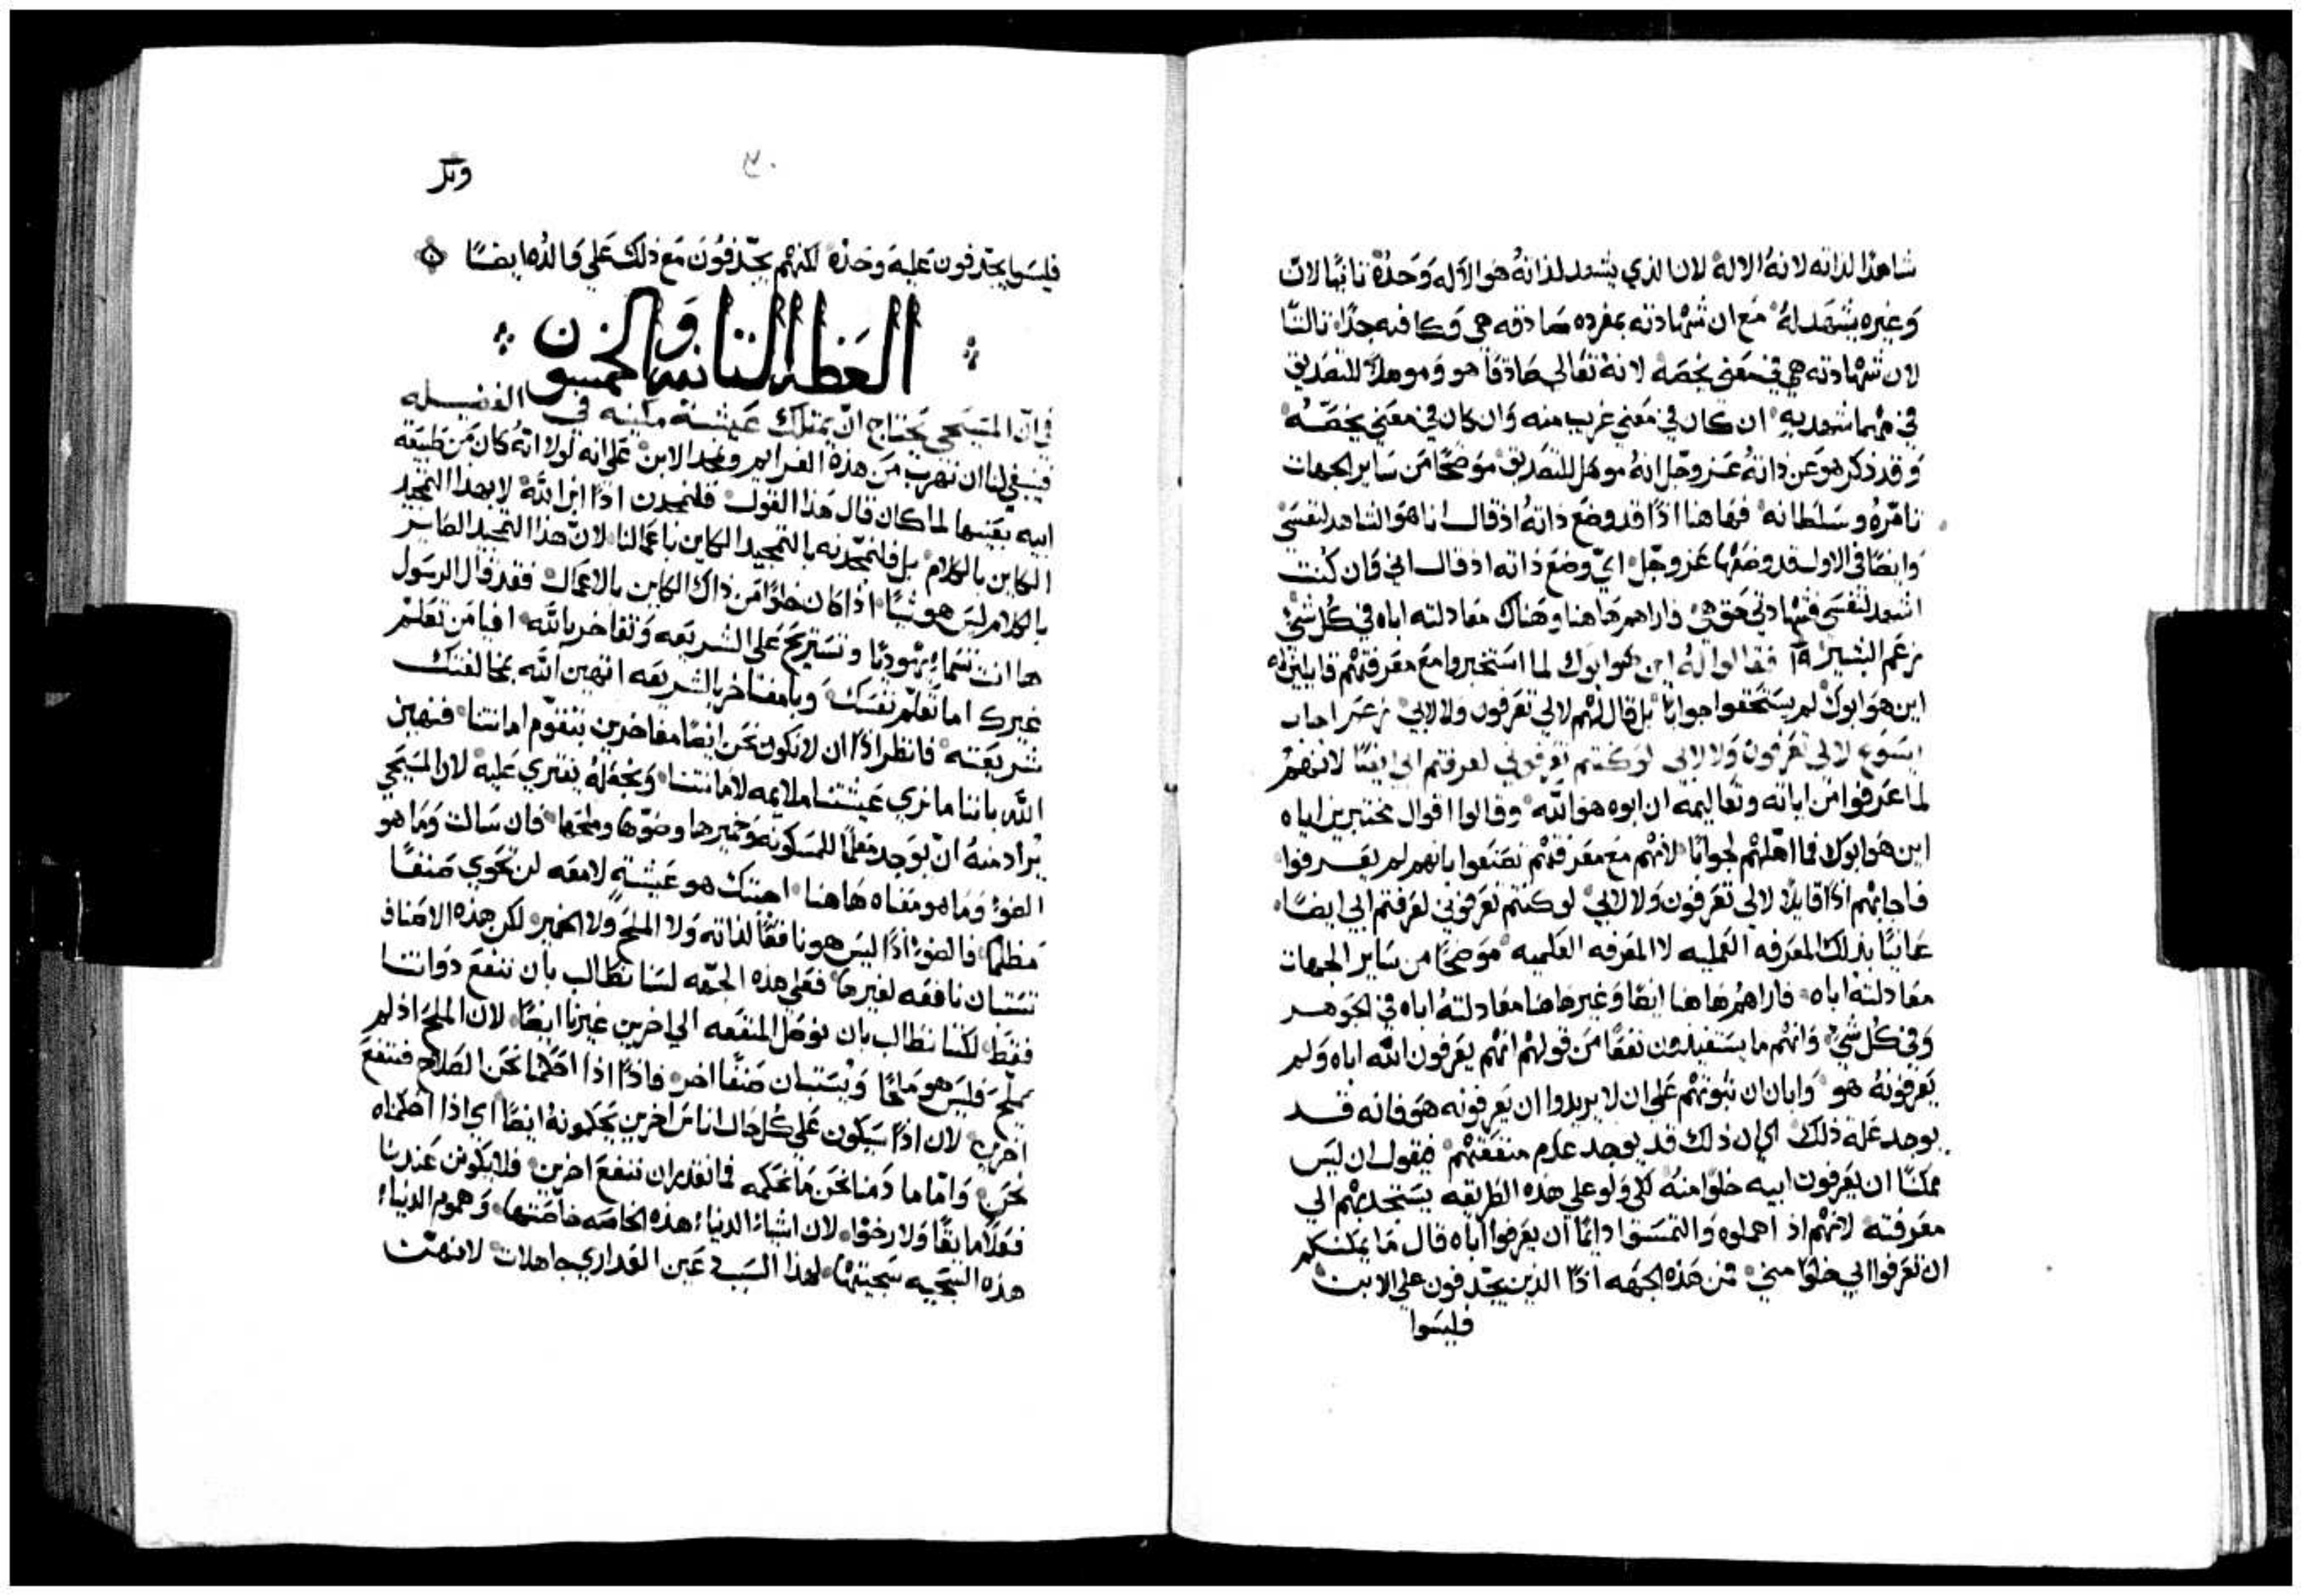 شاهدًا لذاته لانهُ الاله لان الذي يشهد لذاتهُ هو الاله وَحدُه ثانيًا لان
وَغيره يشهَد لهُ مَع ان شهادته بمفرده صَادقه هي وَكافيه جدًا ثالثًا
لان شهادته هي في مَعني يخصَهُ لانهُ تعَالي صَادقًا هو وَموهلاً للتصَديق
في مهما شهد بهِ ان كان في مَعني غريب منه وَان كان في معَني يخصّهُ
وَقد ذكر هو عَن ذاتهُ عَز وجّل انهُ موهل للتصَديق موَضحًا من سَاير الجهات
تامّرهُ وسَلطانه فهَاهنا اذًا قد وضعَ ذاتهُ اذ قال انا هَو الشاهد لنفسَي
وَايضًا في الاول قد وضعَها عَز وجّل اي وضَع ذاته اذ قال اني وَان كنت
اشهد لنفسَي فشهادتي حَق هي فاراهم هَاهنا وهَناك معَادلته اباه في كُل شي
زعَم البشير ١٩ فقالوا لهُ اين هو ابوك لما استَخبروا معَ معَرفتهم قايلين له
اين هوَ ابوك لم يسَتحَقوا جوابًا بل قال لهُم لا لي تعَرفون ولا لابي زعَم اجاب
ايسَوع لا لي تعَرفون وَلا لابي لو كنتم تعَرفوني لعرفتم ابي ايضًا لانهُم
لما عَرفوا من اياته وتعَاليمه ان ابوه هوَ الله وقالوا اقوال مختبرين اياه
اين هوَ ابوك فما اهّلهم لجوابًا لانهُم معَ معَرفتهم تصَنعَوا بانهم لم يعَرفوا
فاجابَهم اذًا قايلاً لا لي تعَرفون وَلا لابي لو كنتم تعَرفوني لعَرفتم ابي ايضًا
عَانيًا بذلك المعَرفه العَمليه لا المعَرفه العَلميه موَضحًا من سَاير الجهات
معَادلتهُ اباه فاراهُم هَاهنا ايضًا وَغير هاهنا معَادلتهُ اباه في الجَوهر
وَفي كُل شي وَانهم ما يسَتفيدون نفعًا من قولهم انهم يعَرفون الله اباه وَلم
يعَرفونهُ هو وَابان ان ثبوتهُم علَي ان لا يريدوا ان يعَرفونه هوَ فانه قد
يوجد عَلة ذلك اي ان ذلك قد يوجد عدم منفعَتهم فيقول ان ليَس
ممكنًا ان يعَرفون ابيه خلوًا منهُ لكي وَلو علي هذه الطريقه يسَتجذبهُم الي
معَرفته لانهُم اذ اهملوه وَالتمسَوا دايمًا ان يعَرفوا اباه قال مَا يمكنكم
ان تعَرفوا ابي خلوًا مني فمن هَذه الجهَه اذًا الذين يجّدفون علي الابن
فليسَوا
وبر
فليسَوا يجّدفون عَليه وَحدهُ لكنهم يجّدفوَن مَع ذلك عَلي وَالدُه ايضًا
العَظه الثانيه وَالخمسون
في ان المسَيحي يحَتاج ان يمتلك عَيشَة مكينه في الفضيله
فينبغي لنا ان نهرب من هَذه الغَرايم ونمجد الابن علَي انه لولا انهُ كان من طبيعَة
ابيه بعَينها لما كان قال هَذا القول فلنمجدن اذًا ابن الله لا بهذا التمجيد
الكاين بالكلام بل فلنمجّدنه بالتمجيد الكاين باعَمالنا لان هَذا التمجيد الصَاير
بالكلام ليس هو شيًا اذا كان خلوًا من ذاك الكاين بالاعمَال فقد قال الرسَول
هَا انت تتسَما يهُوديًا وتسَتريَح عَلي الشَريعَه وَتفاخر بالله افيا من تعَلم
غيرك اما تعَلم نفسَك وَيا مفتاخر بالشَريعَه اتهين الله بمخالفتك
شريعَته فانظر اذًا ان لا نكون نحَن ايضًا مفاخرين بتقوّم امانتنا فنهين
الله باننا ما نري عَيشتنا ملايمه لامانتنا وَنجعَلهُ يفتري عَليه لان المسَيَحي
يُراد منهُ ان يوَجد معَلمًا للمسَكونه وَخميرها وضَوّها وملحَها فان سَالت وَمَا هو
الضو وَمَا هو معَناه هَاهنا اجبتك هو عَيشَةٍ لامعَه لن تحَوي صَنفًا
مظلمًا فالضو اذًا ليَس هو نافعًا لذاته وَلا الملحَ وَلا الخمير لكن هذه الاصَناف
تسَتبان نافعَه لغيرها فعَلي هذه الجَهه لسَنا نطالب بان ننفعَ ذوَاتنا
فقَط لكننا نطالب بان نوصَل المنفعَه الي اخرين غيرنا ايضًا لان الملحَ اذ لم
يملّح فليَس هو مَلحًا وَيسَتبان صَنفًا اخر فاذًا اذا احَكمنا نحَن الصَلاح فننفعَ
اخرين لان اذًا سَيكون علَي كُل حَال اناسَ اخرين يحَكمونهُ ايضًا اي اذا احَكمناه
نحَن وَامّا ما دَمنا نحَن مَا نحَكمه فما نقدر ان ننفعَ اخرين فلا يكونن عَندنا
فعَلاً مايقًا وَلا رخوًا لان اشيا الدنيا هذه الخاصَه خاصَتها وَهموم الدنيا
هذه السَجيه سَجيتها لهذا السَبب دعين العَذاري جاهلات لانهنّ